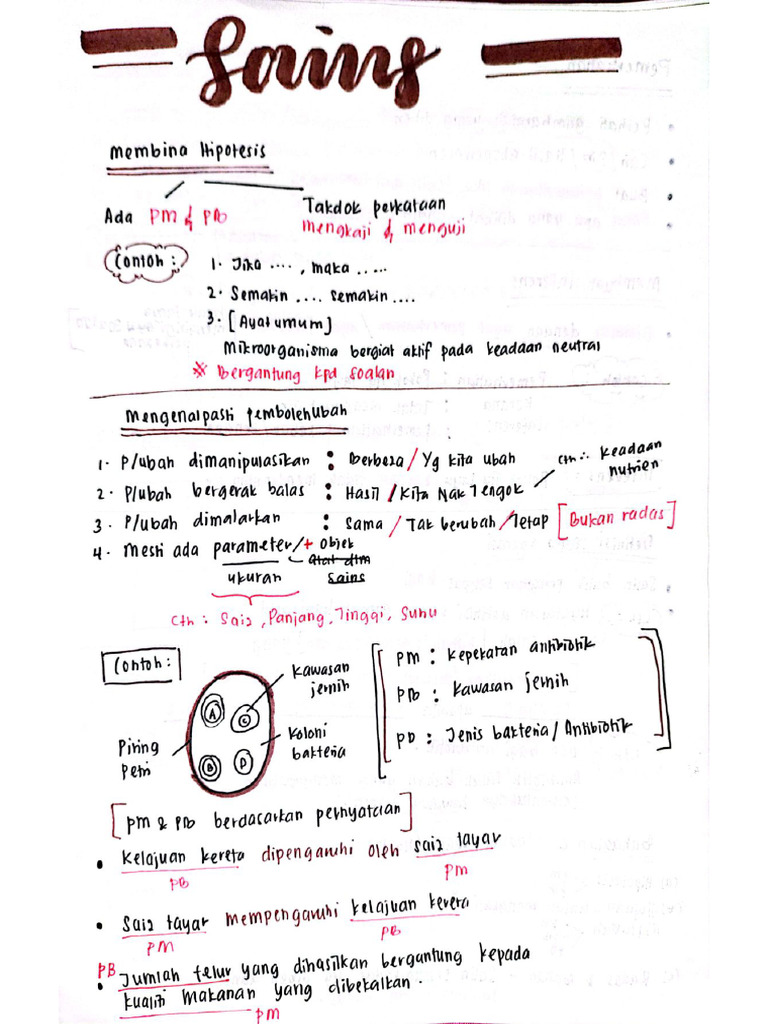 Sains
Membina Hipotesis
Ada PM & PB
Takdok perkataan
mengkaji & menguji
Contoh :
1. Jika ...., maka .....
2. Semakin .... semakin ....
3. [Ayat umum]
Mikroorganisma bergiat aktif pada keadaan neutral
※ Bergantung kpd soalan
Mengenalpasti Pembolehubah
1. P/ubah dimanipulasikan : Berbeza / Yg kita ubah
2. P/ubah bergerak balas : Hasil / Kita Nak Tengok
cth : Keadaan
nutrien
3. P/ubah dimalarkan : Sama / Tak berubah / Tetap [Bukan radas]
4. Mesti ada parameter/+ objek
alat dlm
ukuran
Sains
Cth : Saiz, Panjang, Tinggi, Suhu
Contoh :
Kawasan
jernih
A
C
B
D
Piring
Petri
Koloni
bakteria
PM : Kepekatan antibiotik
PB : Kawasan jernih
PD : Jenis bakteria / Antibiotik
[PM & PB berdasarkan pernyataan]
• Kelajuan kereta dipengaruhi oleh saiz tayar
PB
PM
• Saiz tayar mempengaruhi kelajuan kereta
PM
PB
PB
• Jumlah telur yang dihasilkan bergantung kepada
kualiti makanan yang dibekalkan.
PM